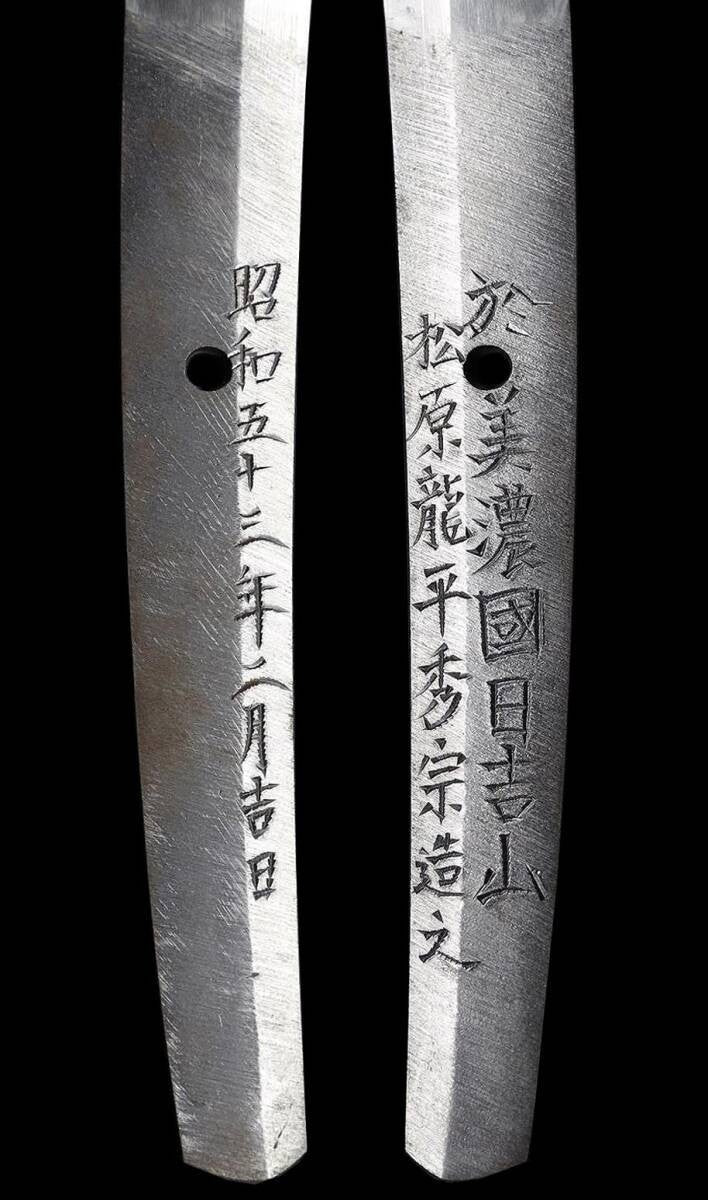 於美濃國日吉山
松原龍平秀宗造之
昭和五十三年二月吉日